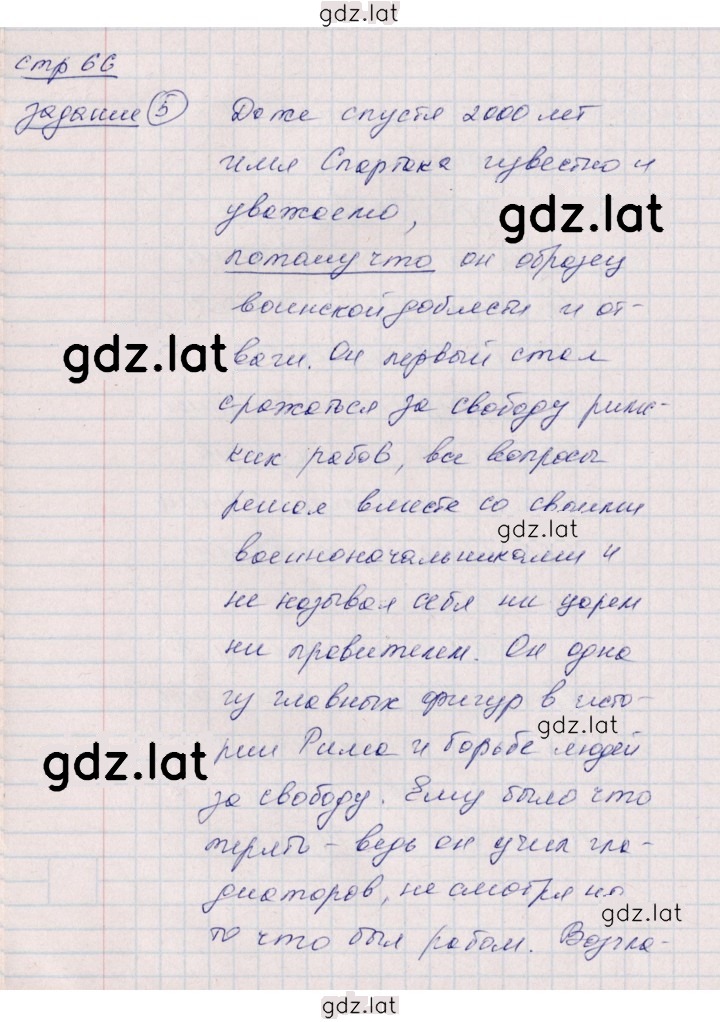 gdz.lat
стр 66
задание 5 Даже спустя 2000 лет
имя Спартака известно и
уважаемо,
gdz.lat
потому что он образец
воинской доблести и от-
gdz.lat
ваги. Он первый стал
сражаться за свободу римс-
ких рабов, все вопросы
решал вместе со своими
gdz.lat
военноначальниками и
не называл себя ни царем
ни правителем. Он одна
из главных фигур в исто-
gdz.lat
рии Рима и борьбе людей
gdz.lat
за свободу. Ему было что
терять - ведь он учил гла-
диаторов, не смотря на
gdz.lat
то что был рабом. Возгла-
gdz.lat